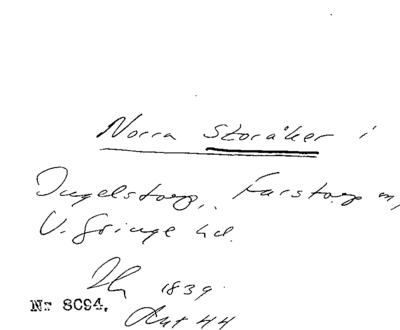 Norra Storåker i
Ingelstorp, Farstorp m,
V. Göinge hd.
1839
Nr 8094.
Akt 44